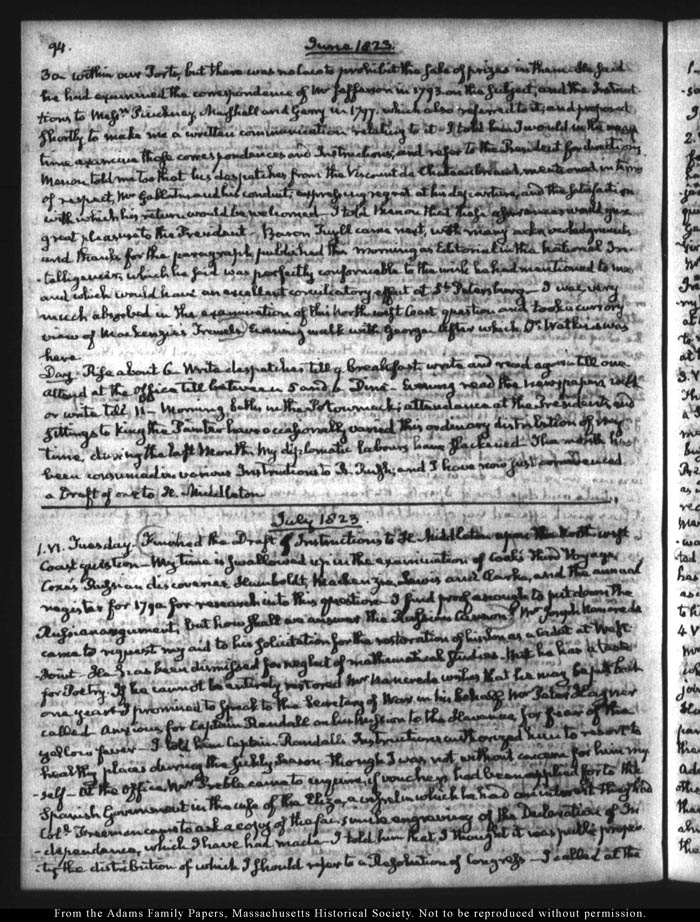 94.
June 1823.
30 within our Ports, but there was no law to prohibit the sale of prizes in them. He said
he had examined the correspondence of Mr Jefferson in 1793. on the subject, and the Instruc-
tions to Messrs Pinckney, Marshall and Gerry in 1797. which also referred to it, and proposed
shortly to make me a written communication relating to it— I told him I would in the mean
time examine those correspondences and Instructions, and refer to the President for directions.
Menou told me too that his despatches from the Viscount de Chateaubriand mentioned in terms
of respect, Mr Gallatin and his conduct, expressing regret at his departure, and the satisfaction
with which his return would be welcomed— I told Menou that these assurances would give
great pleasure to the President— Baron Tuyll came next, with many acknowledgments
and thanks for the paragraph published this morning as Editorial in the National In-
telligencer, which he said was perfectly conformable to the wish he had mentioned to me
and which would have an excellent conciliatory effect at St Petersburg— I was very
much absorbed in the examination of this North west Coast question and took a cursory
view of Mackenzie's Travels. Evening walk with George after which Dr Watkins was
here.
Day. Rise about 6— Write despatches till 9. breakfast, write and read again till one
attend at the office till between 5 and 6 Dine— Evening read the newspapers
or write till 11— Morning baths in the Potowmack; attendance at the Presidents, and
sittings to King the Painter have occasionally varied this ordinary distribution of my
time, during the last Month. My diplomatic labours have slackened. The month has
been consumed in various Instructions to R. Rush; and I have now just commenced
a Draft of one to H. Middleton
July 1823.
1. VI. Tuesday. Finished the Draft of Instructions to H. Middleton upon the North west
Coast question— My time is swallowed up in the examination of Cook's Third Voyage
Coxe's Russian discoveries, Humboldt, Mackenzie, Lewis and Clarke, and the annual
register for 1790 for research into this question— I find proof enough to put down the
Russian argument; but how shall we answer the Russian Cannon? Mr Joseph Nancrede
came to request my aid to his solicitation for the restoration of his Son as a Cadet at West-
Point— He has been dismissed for neglect of mathematical Studies. But he has a taste
for Poetry. If he cannot be entirely restored Mr Nancrede wishes that he may be put back
one year— I promised to speak to the Secretary of War in his behalf Mr Peter Hagner
called Anxious for Captain Randall on his mission to the Havanna, for fear of the
yellow fever— I told him Captain Randall's Instructions authorized him to resort to
healthy places during the sickly season though I was not without concern for him my
-self— At the Office Mr Preble came to enquire if vouchers had been applied for to the
Spanish Government in the case of the Eliza, a vessel in which he had an interest
Coll. Freeman came to ask a copy of the fac simile engraving of the Declaration of In
-dependance, which I have had made— I told him that I thought it was public proper-
-ty the distribution of which I should refer to a Resolution of Congress— I called at the
From the Adams Family Papers, Massachusetts Historical Society. Not to be reproduced without permission.